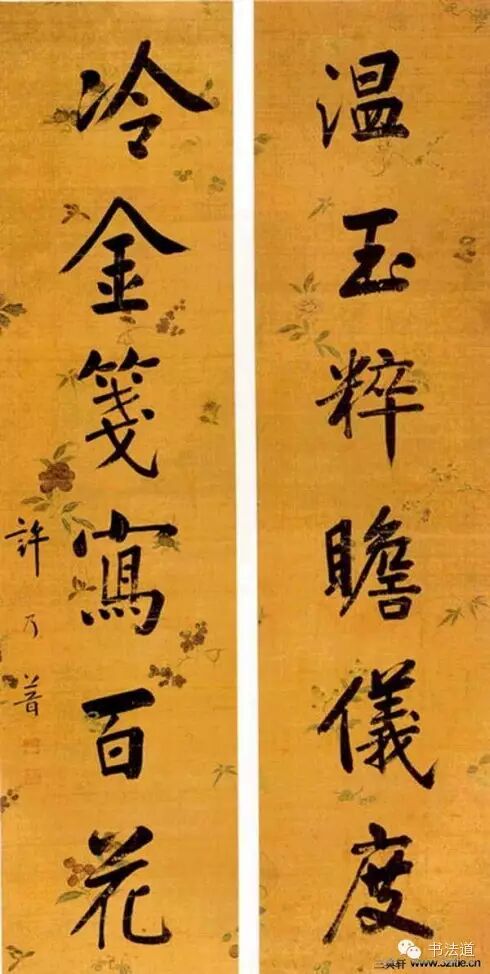 温玉粹瞻儀度
冷金箋寫百花
許乃普
书法道